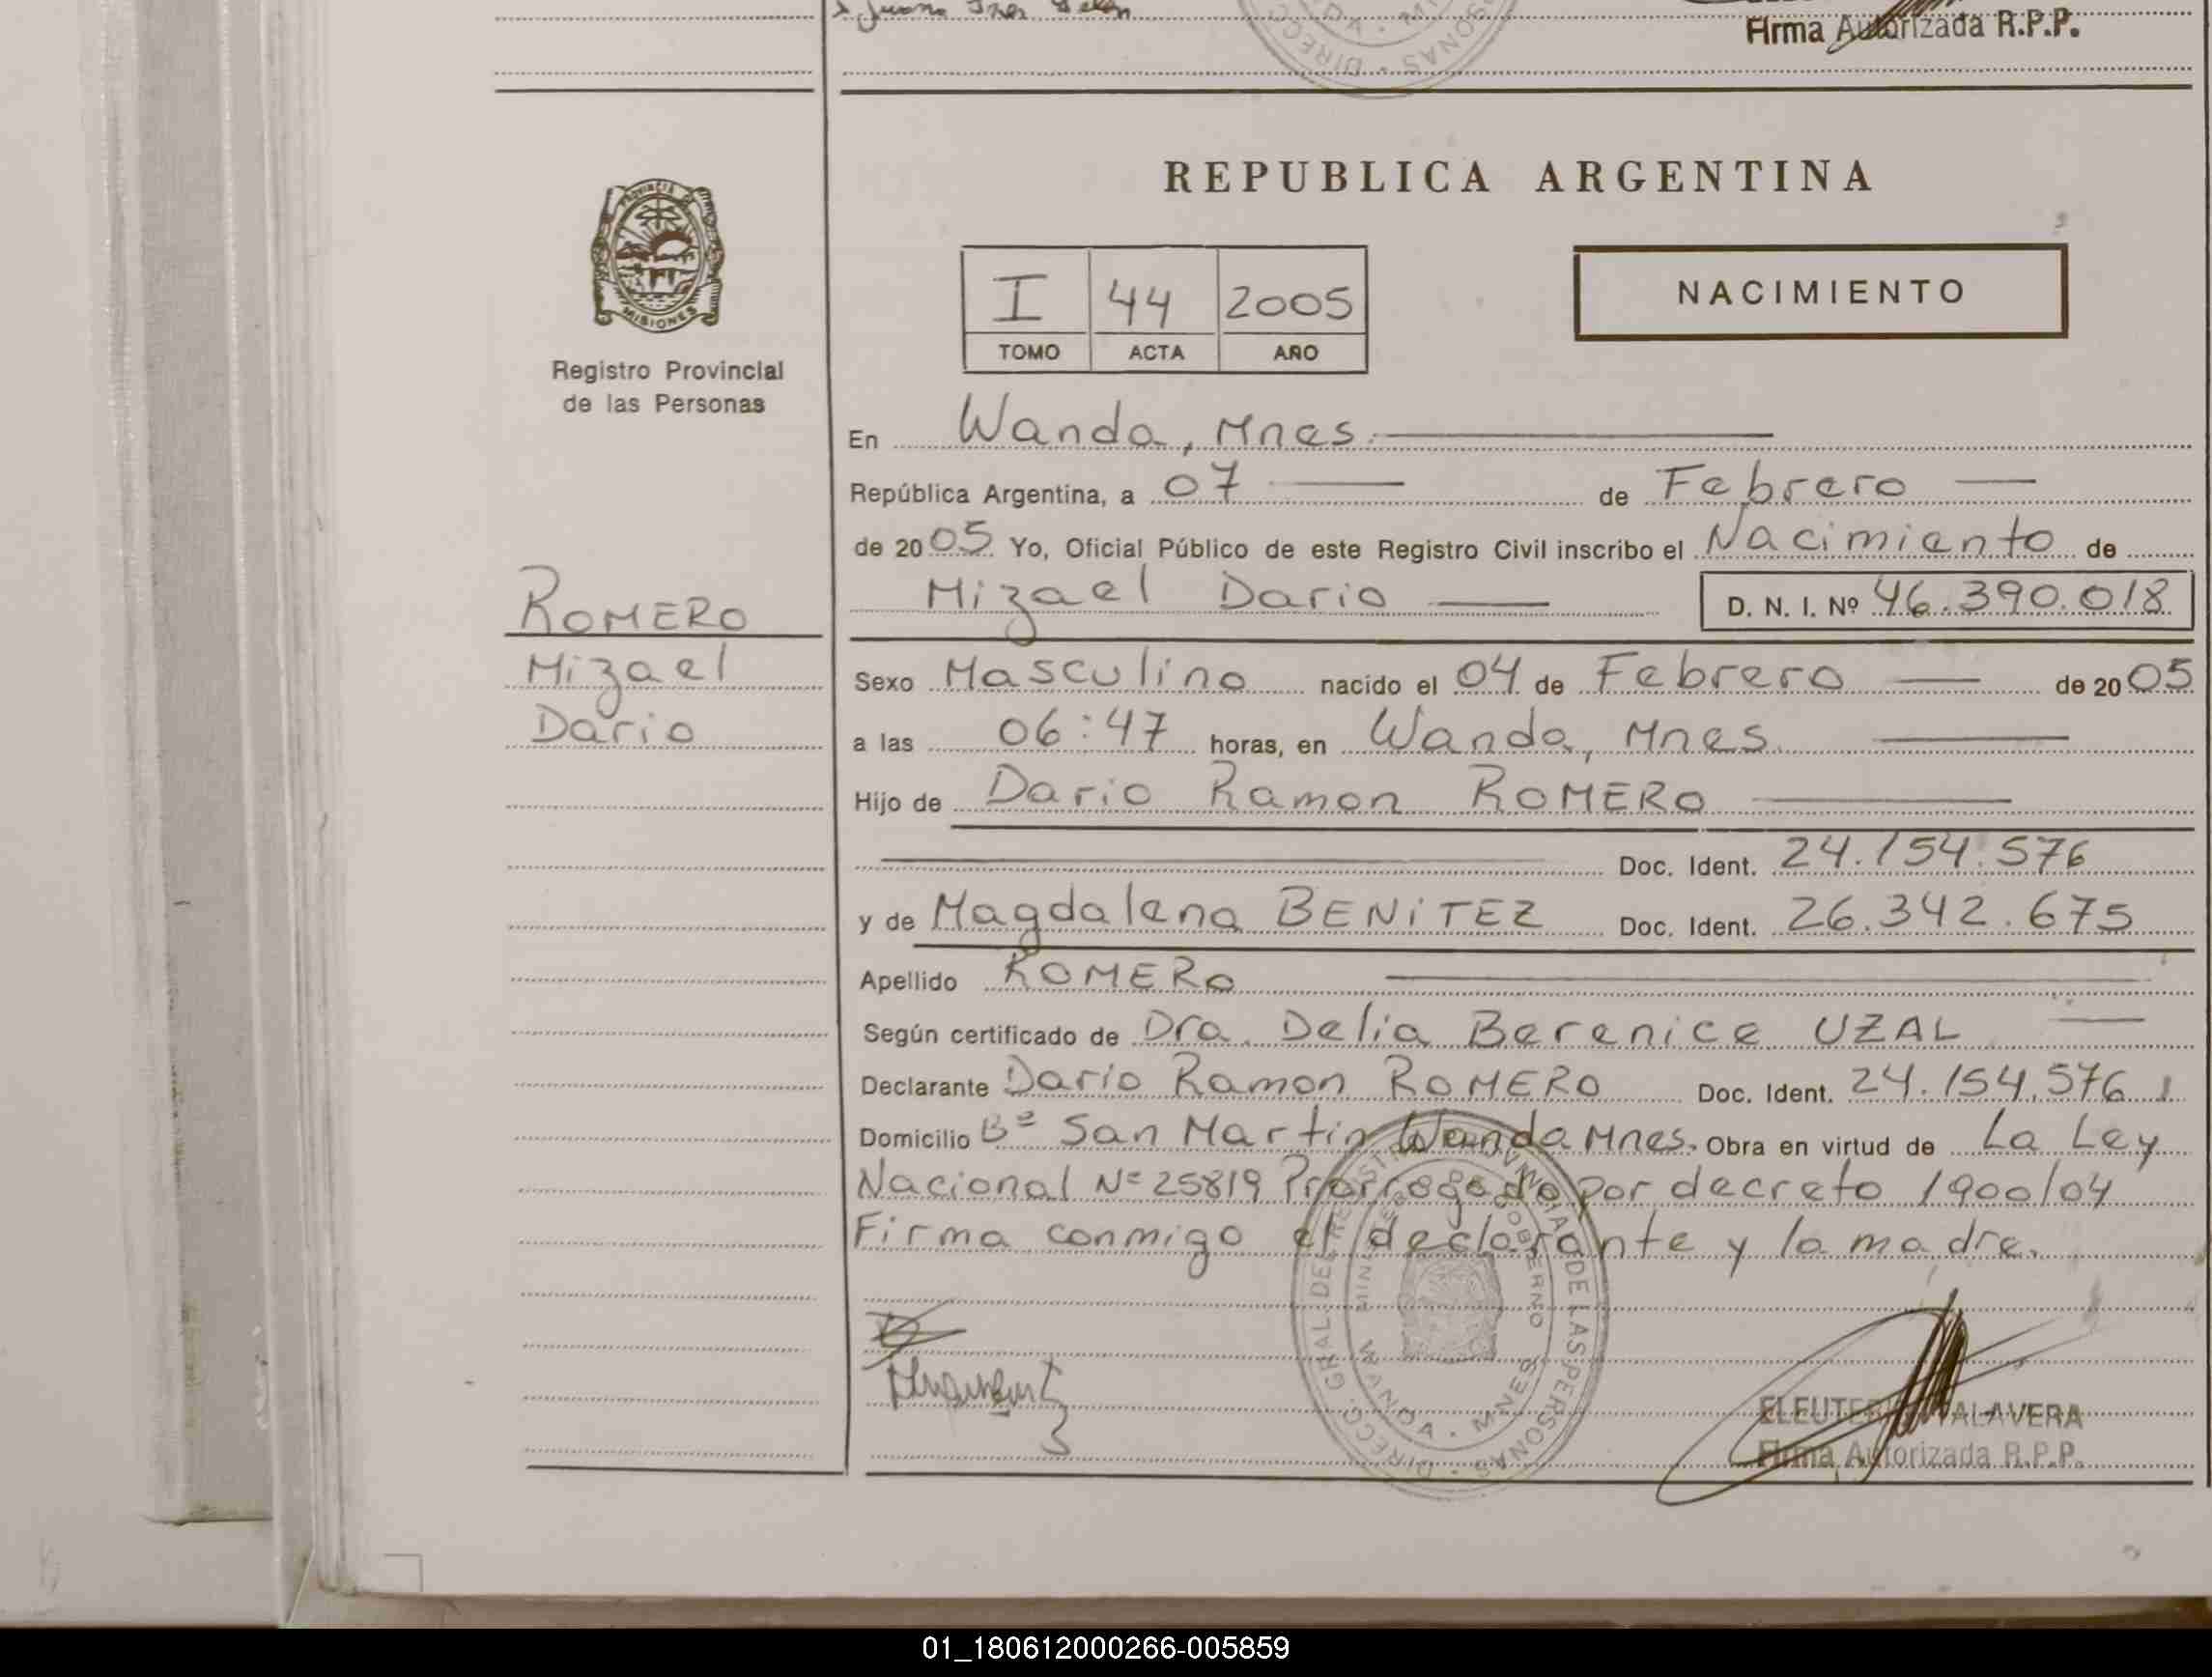 Juana Ines
Firma Autorizada R.P.P.
DIRECC
PERSONAS
PROVINCIA
MISIONES
Registro Provincial
de las Personas
REPUBLICA ARGENTINA
I 44 2005
TOMO ACTA AÑO
NACIMIENTO
En Wanda, Mnes.
República Argentina, a 07 de Febrero
de 2005 Yo, Oficial Público de este Registro Civil inscribo el Nacimiento de
Mizael Dario D. N. I. Nº 46.390.018
ROMERO
Mizael
Dario
Sexo Masculino nacido el 04 de Febrero de 2005
a las 06:47 horas, en Wanda, Mnes.
Hijo de Dario Ramon ROMERO
Doc. Ident. 24.154.576
y de Magdalena BENiTEZ Doc. Ident. 26.342.675
Apellido ROMERO
Según certificado de Dra. Delia Berenice UZAL
Declarante Dario Ramon ROMERO Doc. Ident. 24.154.576
Domicilio Bº San Martin Wanda Mnes. Obra en virtud de La Ley
Nacional Nº 25819 Prorrogado por decreto 1900/04
Firma conmigo el declarante y la madre.
DIRECC. GRAL. DEL REGISTRO PROVINCIAL DE LAS PERSONAS
GOBIERNO
WANDA - MNES
ELEUTERIO TALAVERA
Firma Autorizada R.P.P.
01_180612000266-005859